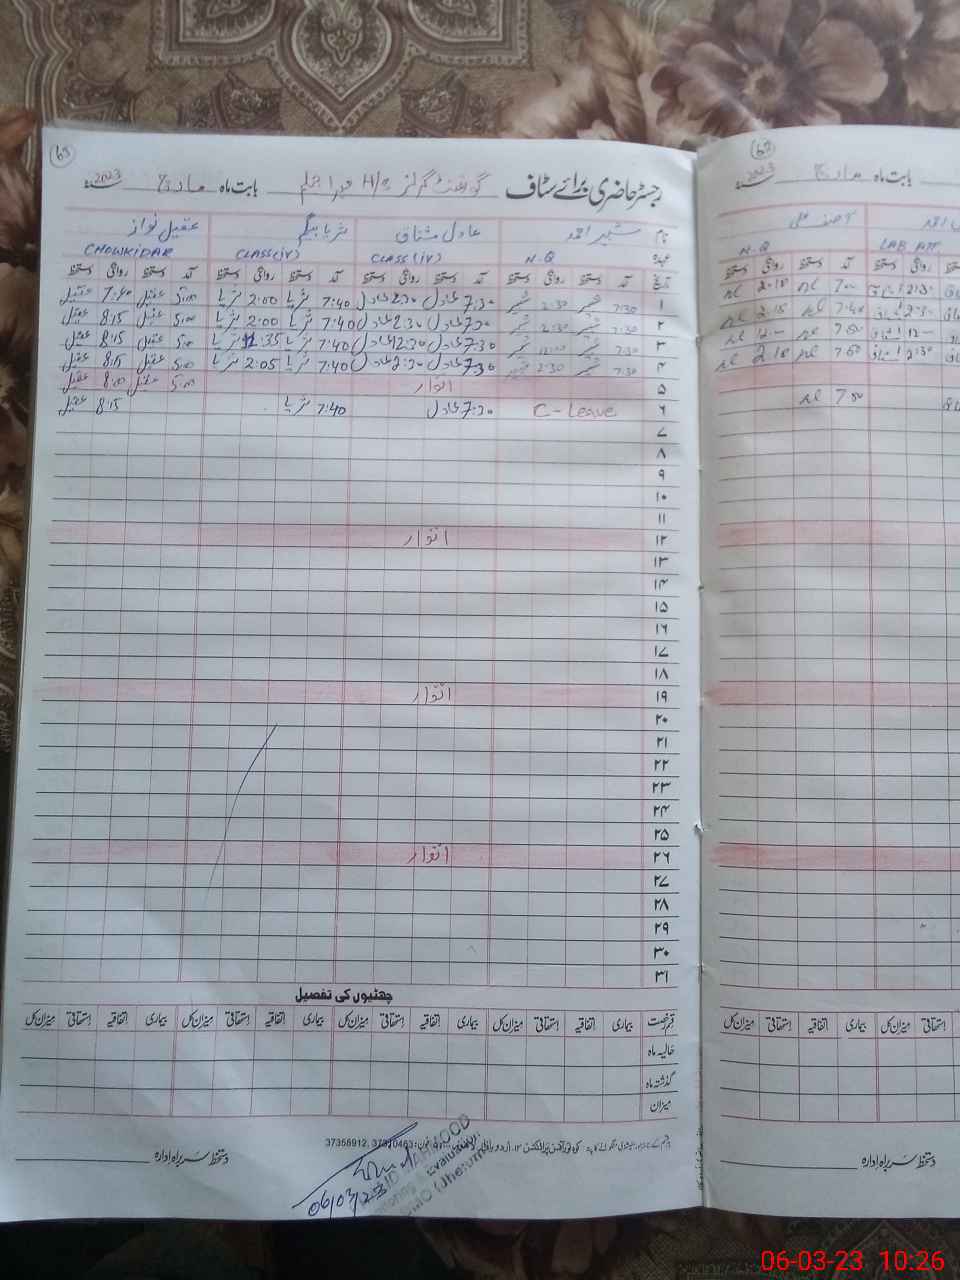 63
رجسٹر حاضری برائے سٹاف گورنمنٹ گرلز H/S بابت ماہ مارچ 2023
نام شبیر احمد عادل مشتاق ثریا بیگم عقیل نواز
عہدہ N.Q CLASS(iV) CLASS(iV) CHOWKIDAR
تاریخ آمد دستخط روانگی دستخط آمد دستخط روانگی دستخط آمد دستخط روانگی دستخط آمد دستخط روانگی دستخط
۱ 7:30 شبیر 2:30 شبیر 7:30 عادل 2:30 عادل 7:40 ثریا 2:00 ثریا 5:00 عقیل 7:40 عقیل
۲ 7:30 شبیر 2:30 شبیر 7:30 عادل 2:30 عادل 7:40 ثریا 2:00 ثریا 5:00 عقیل 8:15 عقیل
۳ 7:30 شبیر 12:00 شبیر 7:30 عادل 12:30 عادل 7:40 ثریا 12:35 ثریا 5:00 عقیل 8:15 عقیل
۴ 7:30 شبیر 2:30 شبیر 7:30 عادل 2:30 عادل 7:40 ثریا 2:05 ثریا 5:00 عقیل 8:15 عقیل
۵ اتوار 5:00 عقیل 8:00 عقیل
۶ C-Leave 7:30 عادل 7:40 ثریا 8:15 عقیل
۷
۸
۹
۱۰
۱۱
۱۲ اتوار
۱۳
۱۴
۱۵
۱۶
۱۷
۱۸
۱۹ اتوار
۲۰
۲۱
۲۲
۲۳
۲۴
۲۵
۲۶ اتوار
۲۷
۲۸
۲۹
۳۰
۳۱
چھٹیوں کی تفصیل
قسم رخصت بیماری اتفاقیہ استحقاقی میزان کل بیماری اتفاقیہ استحقاقی میزان کل بیماری اتفاقیہ استحقاقی میزان کل بیماری اتفاقیہ استحقاقی میزان کل
حالیہ ماہ
گذشتہ ماہ
میزان
37356912, 37310463
دستخط سربراہ ادارہ
MAHMOOD
Evaluation
(Jhelum)
06/03/23
62
بابت ماہ مارچ 2023
احمد آصف علی
LAB ATT N.Q
روانگی دستخط آمد دستخط روانگی دستخط
2:30 7:00 2:10
2:30 7:40 2:15
12:00 7:50 12:00
2:30 7:50 2:10
7:50
بیماری اتفاقیہ استحقاقی میزان کل
دستخط سربراہ ادارہ
06-03-23 10:26